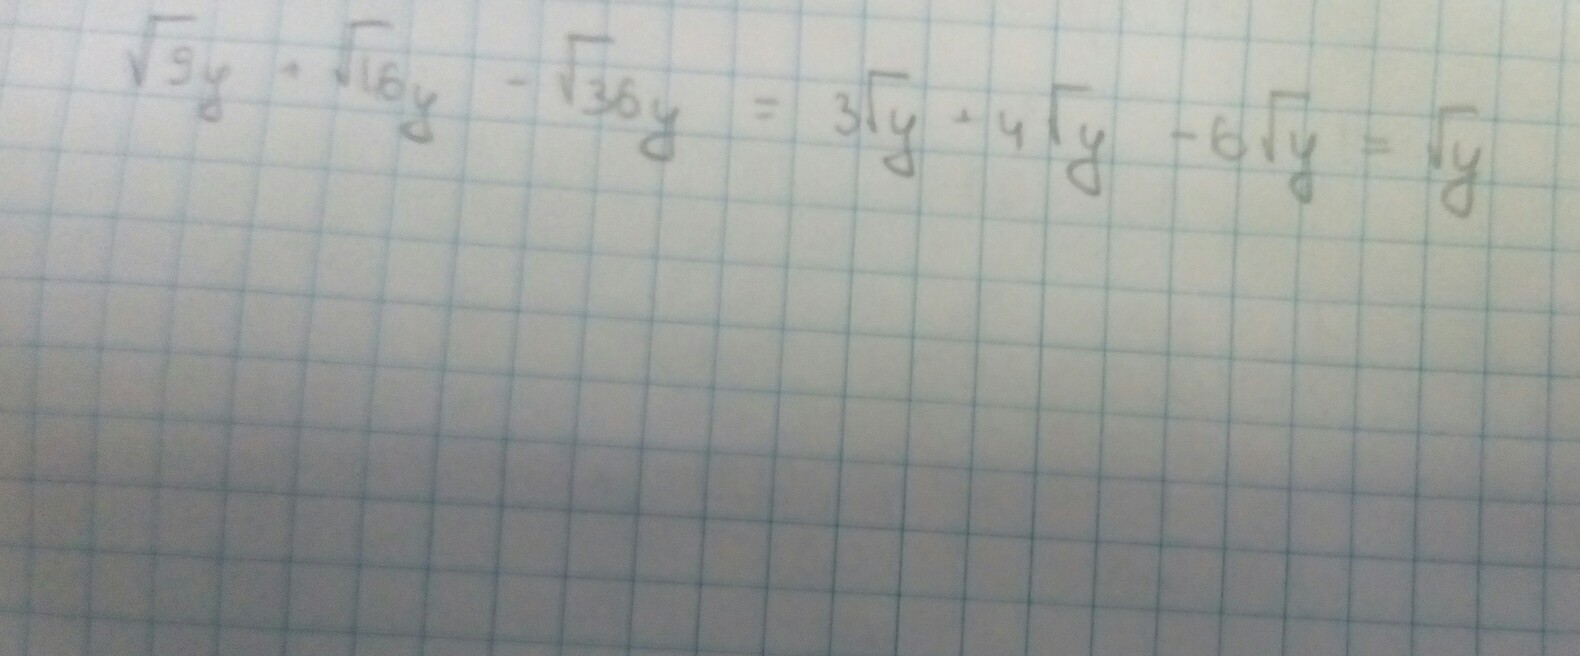 √9y + √16y - √36y = 3√y + 4√y - 6√y = √y